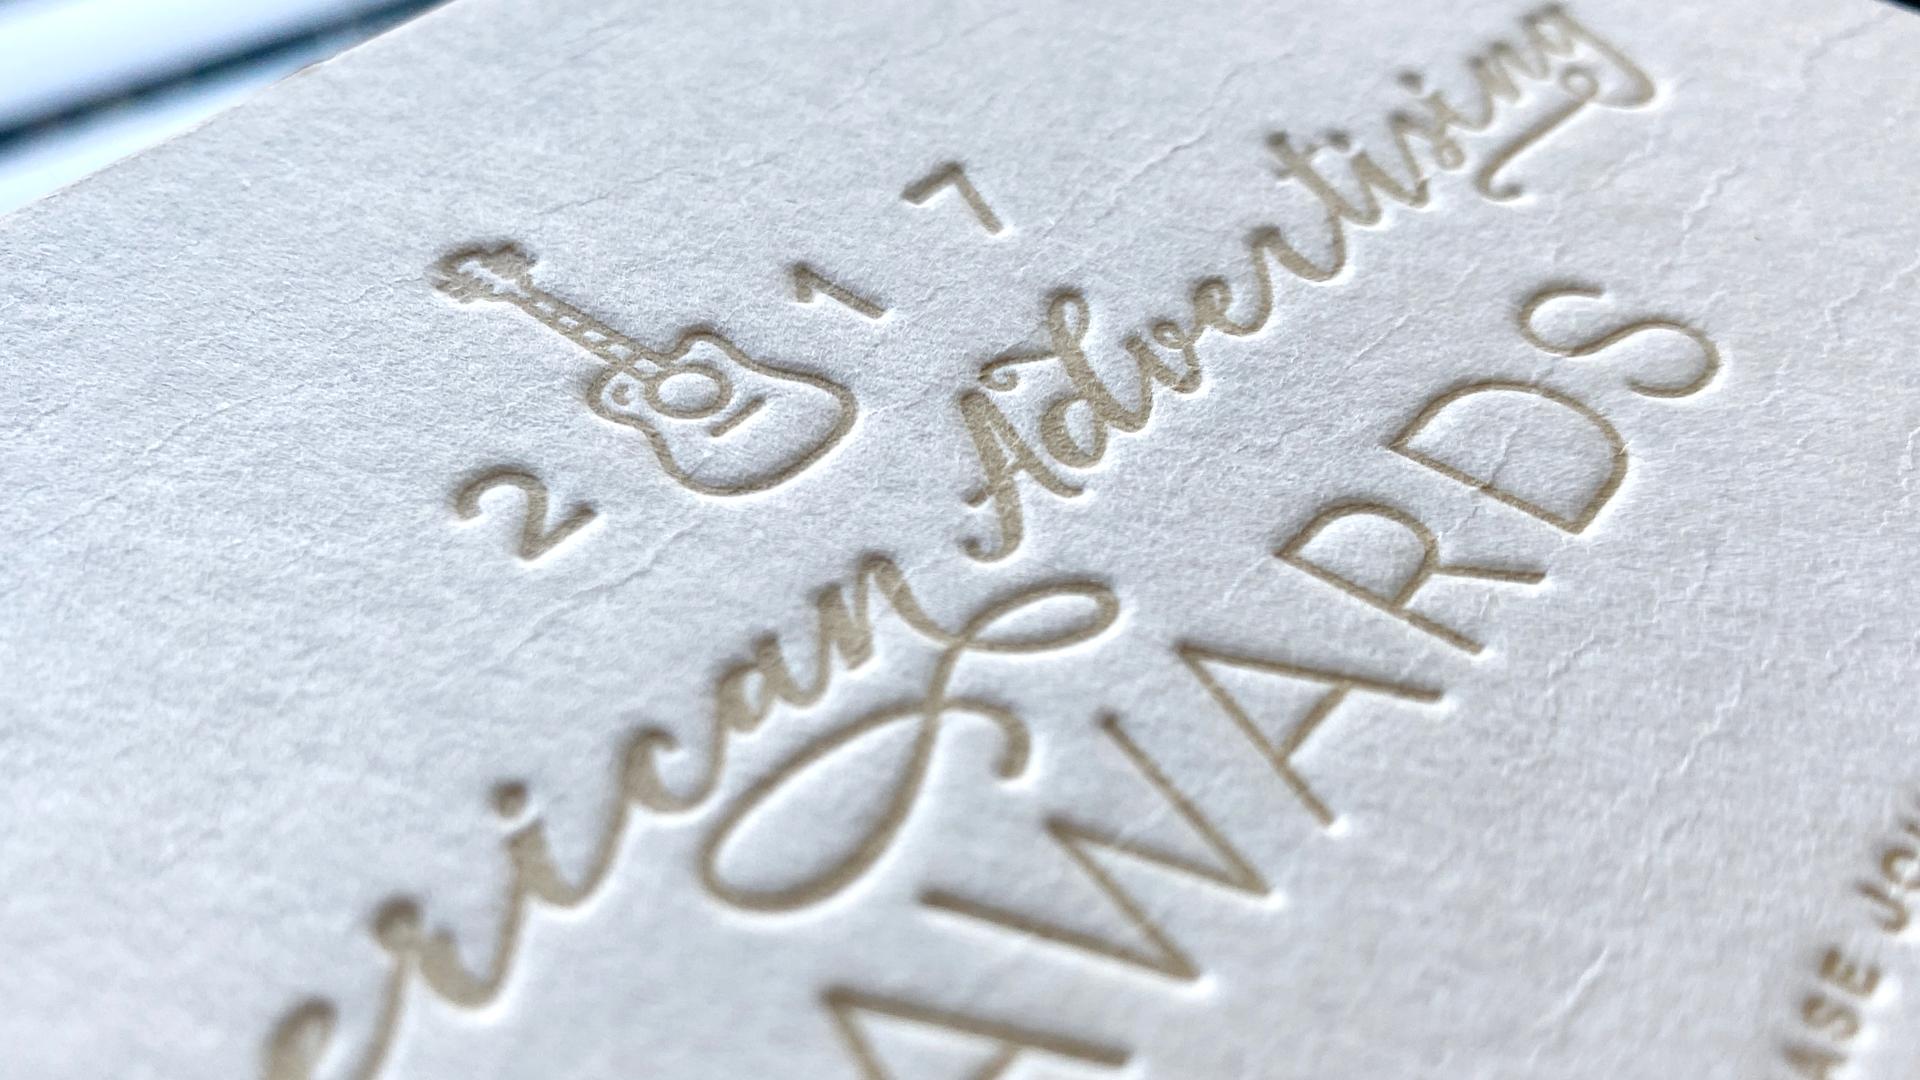 2 1 7
erican Advertising
AWARDS
ASE JO